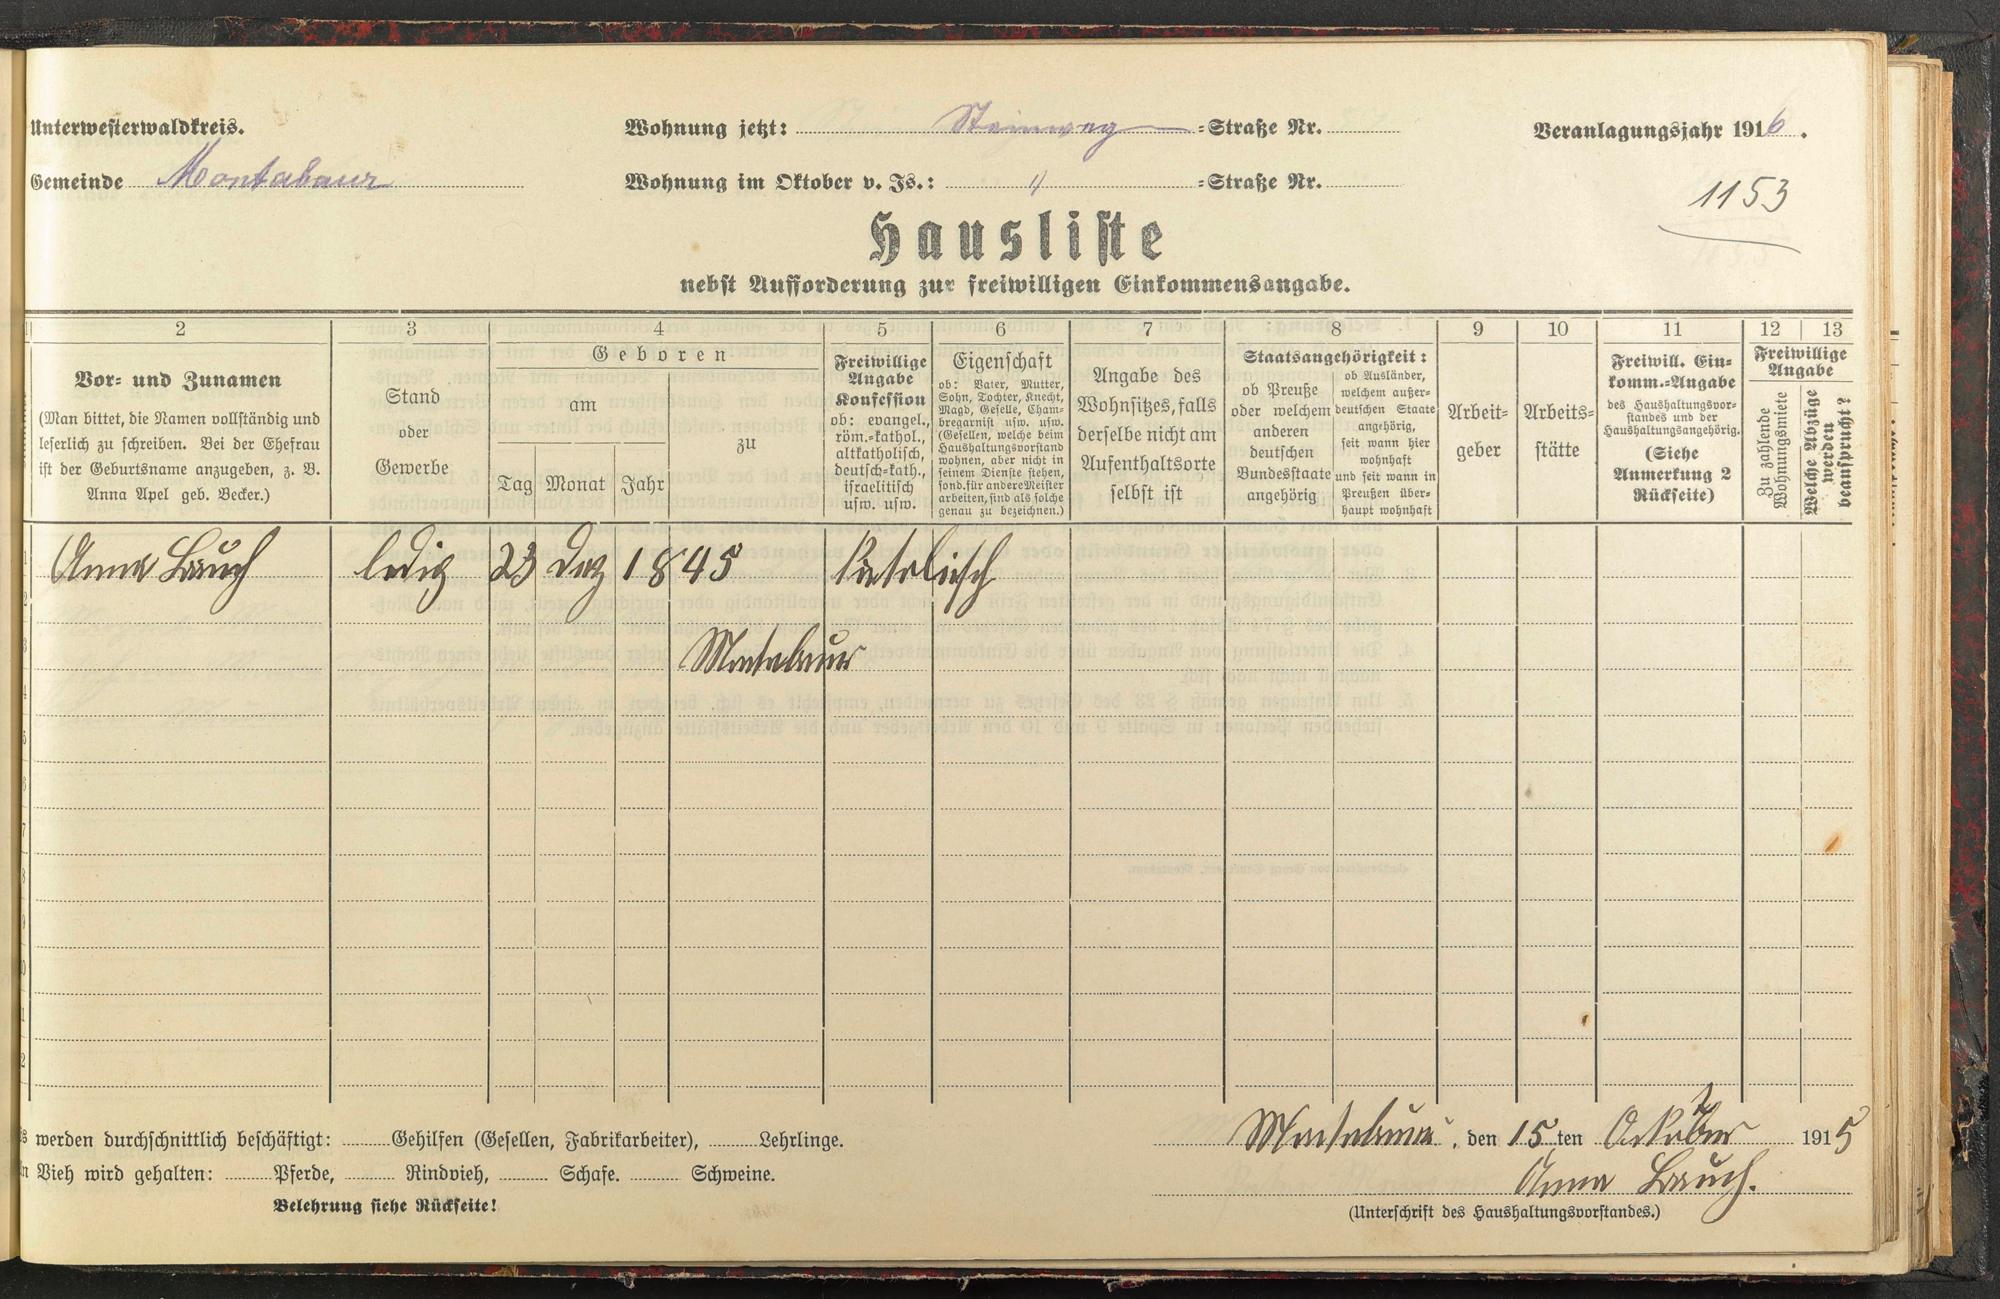 Unterwesterwaldkreis.
Wohnung jetzt: Steinweg =Straße Nr.
Veranlagungsjahr 1916.
Gemeinde Montabaur
Wohnung im Oktober v. Js.: " =Straße Nr.
1153
Hausliste
nebst Aufforderung zur freiwilligen Einkommensangabe.
2 3 4 5 6 7 8 9 10 11 12 13
Vor- und Zunamen
(Man bittet, die Namen vollständig und
leserlich zu schreiben. Bei der Ehefrau
ist der Geburtsname anzugeben, z. B.
Anna Apel geb. Becker.)
Stand
oder
Gewerbe
Geboren
am
Tag Monat Jahr
zu
Freiwillige
Angabe
Konfession
ob: evangel.,
röm.-kathol.,
altkatholisch,
deutsch-kath.,
israelitisch
usw. usw.
Eigenschaft
ob: Vater, Mutter,
Sohn, Tochter, Knecht,
Magd, Geselle, Cham-
bregarnist usw. usw.
(Gesellen, welche beim
Haushaltungsvorstand
wohnen, aber nicht in
seinem Dienste stehen,
sond. für andere Meister
arbeiten, sind als solche
genau zu bezeichnen.)
Angabe des
Wohnsitzes, falls
derselbe nicht am
Aufenthaltsorte
selbst ist
Staatsangehörigkeit:
ob Preuße
oder welchem
anderen
deutschen
Bundesstaate
angehörig
ob Ausländer,
welchem außer-
deutschen Staate
angehörig,
seit wann hier
wohnhaft
und seit wann in
Preußen über-
haupt wohnhaft
Arbeit-
geber
Arbeits-
stätte
Freiwill. Ein-
komm.-Angabe
des Haushaltungsvor-
standes und der
Haushaltungsangehörig.
(Siehe
Anmerkung 2
Rückseite)
Freiwillige
Angabe
Zu zahlende
Wohnungsmiete
Welche Abzüge
werden
beansprucht?
1 Anna Bauch ledig 23 Dez 1845 katolisch
2
3 Montabaur
4
5
6
7
8
9
werden durchschnittlich beschäftigt: Gehilfen (Gesellen, Fabrikarbeiter), Lehrlinge.
Montabaur, den 15ten Oktober 1915
Vieh wird gehalten: Pferde, Rindvieh, Schafe. Schweine.
Anna Bauch.
Belehrung siehe Rückseite!
(Unterschrift des Haushaltungsvorstandes.)